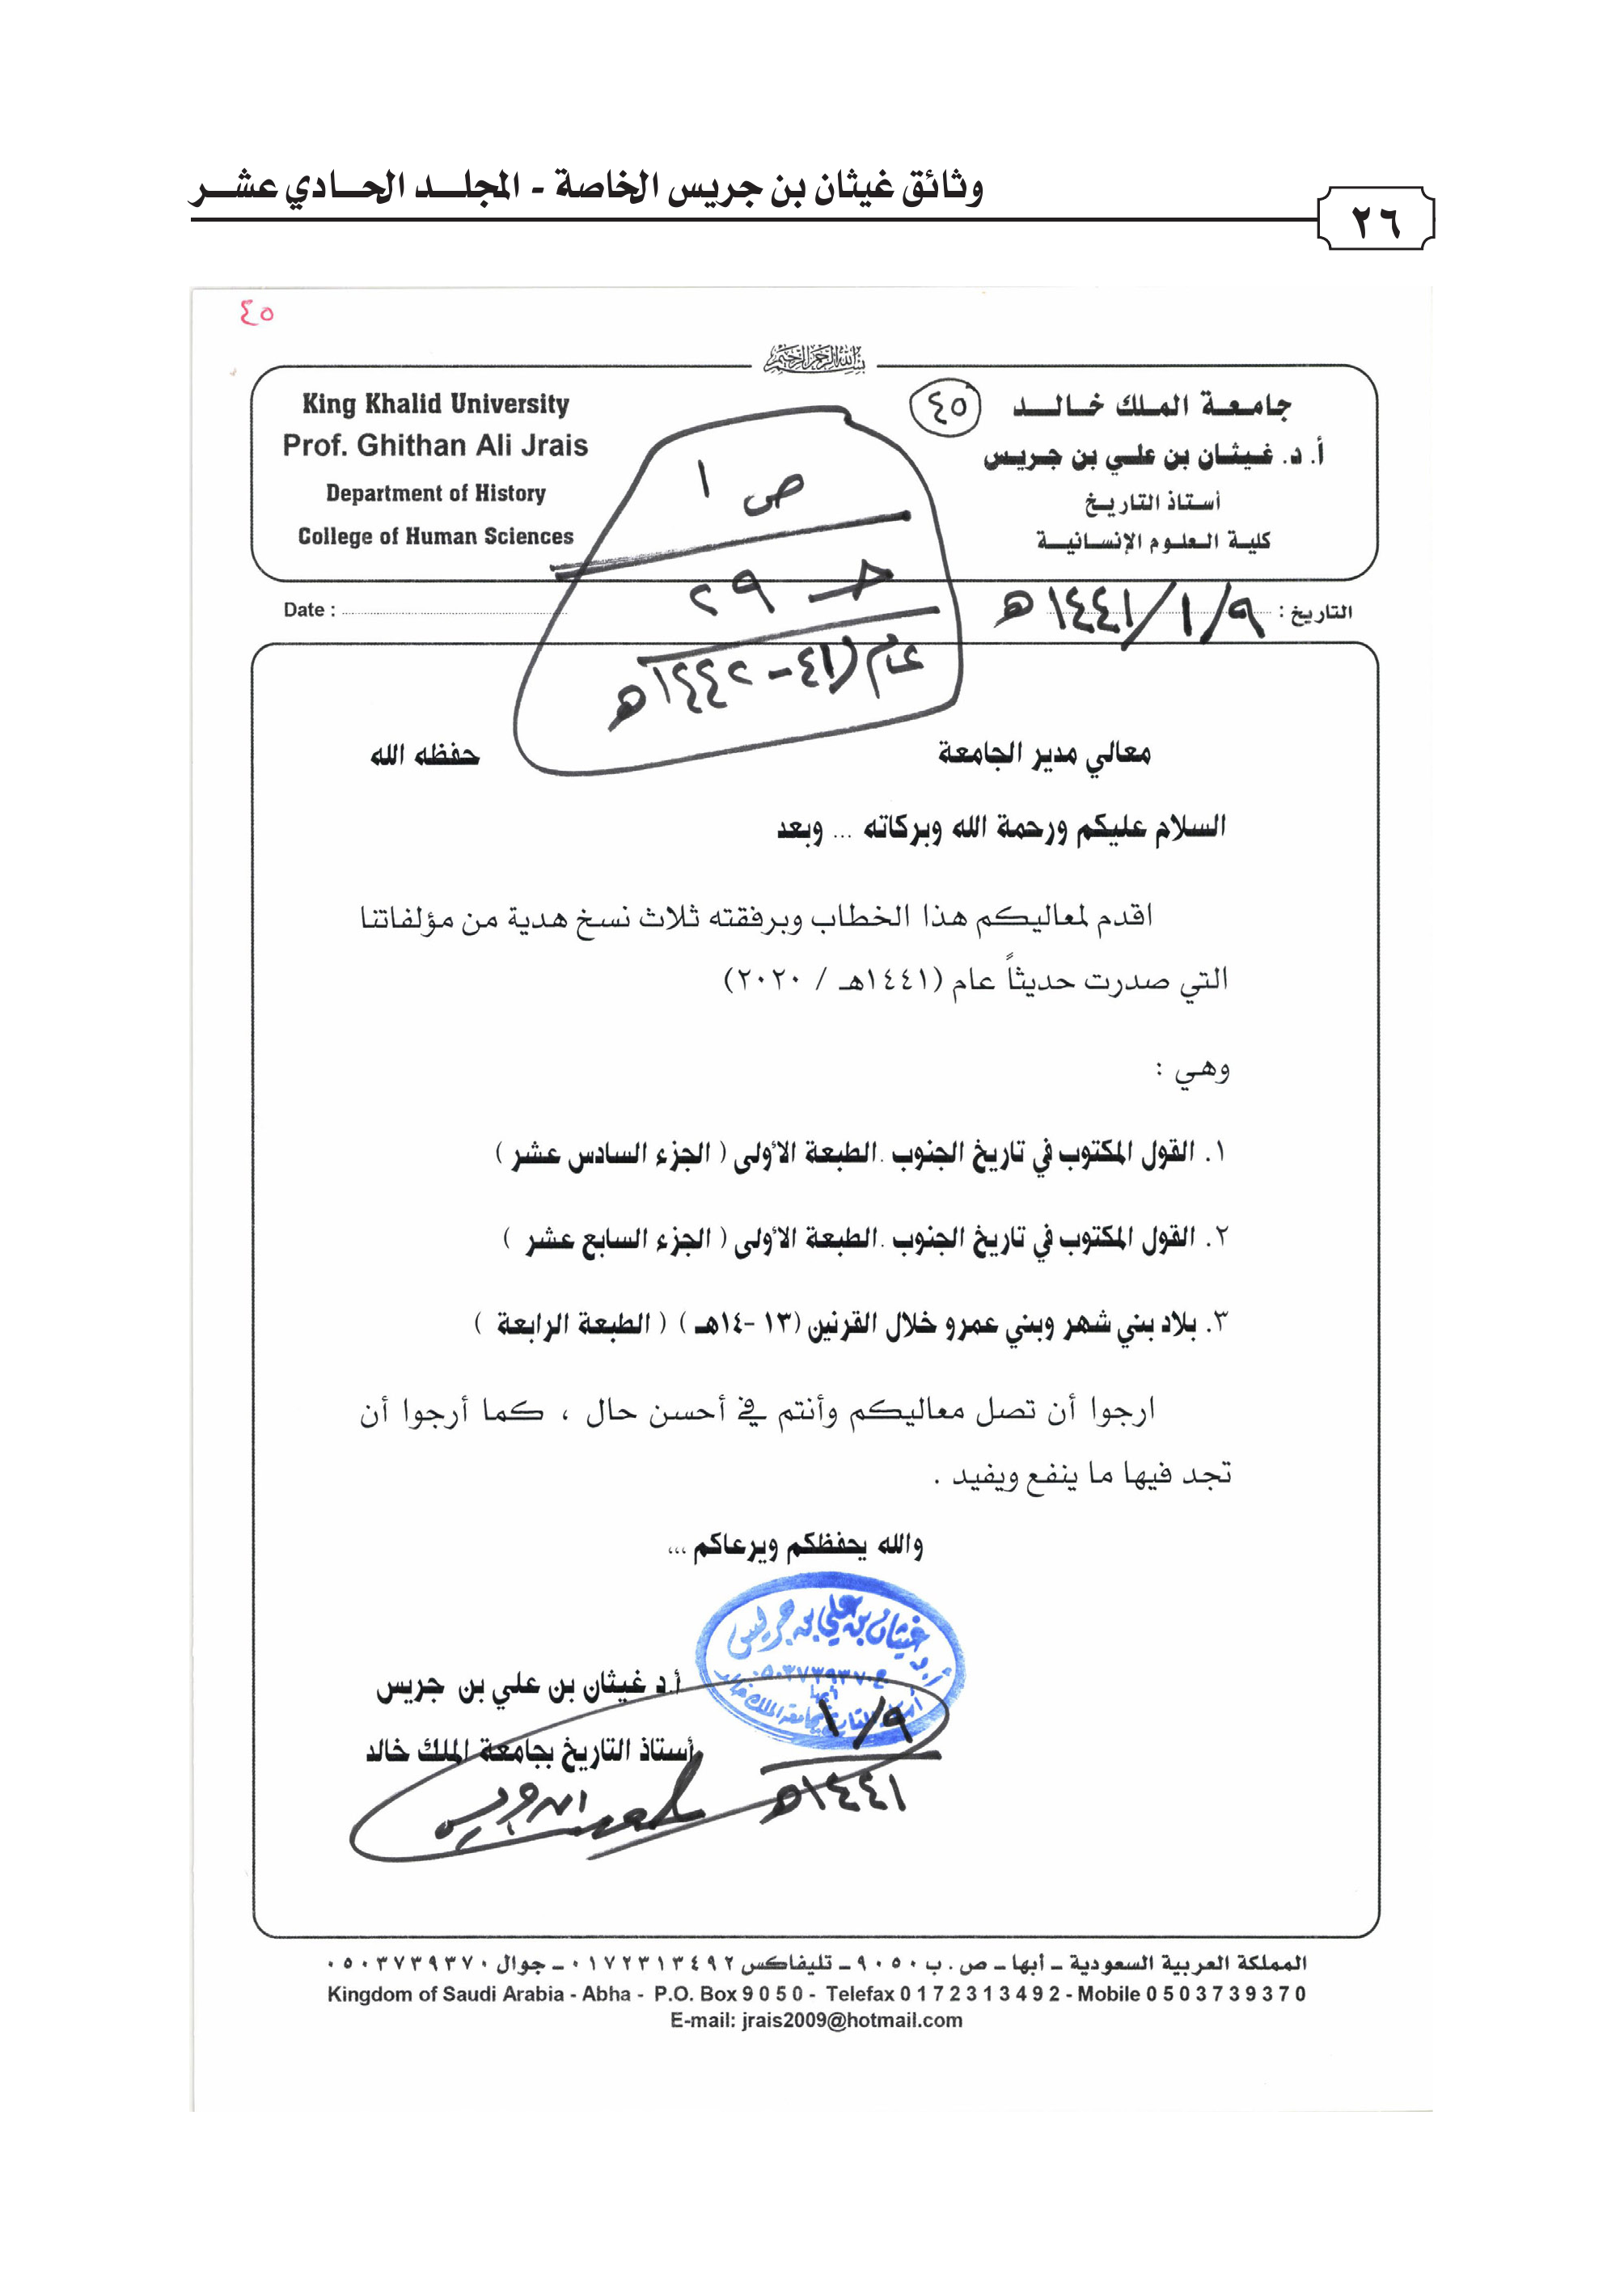 وثائق غيثان بن جريس الخاصة - المجلـــد الحـــادي عشـــر
٢٦
٤٥
بسم الله الرحمن الرحيم
جامعـة الملـك خـالـــد
٤٥
أ. د. غـيـثـان بن علـي بن جـريـس
أستـاذ التاريـخ
كليـة العلـوم الإنسـانيـة
King Khalid University
Prof. Ghithan Ali Jrais
Department of History
College of Human Sciences
ص ١
جـ ٢٩
عام (٤١ - ١٤٤٢هـ
التاريخ : ٩ / ١ / ١٤٤١هـ
Date :
معالي مدير الجامعة حفظه الله
السلام عليكم ورحمة الله وبركاته ... وبعد
اقدم لمعاليكم هذا الخطاب وبرفقته ثلاث نسخ هدية من مؤلفاتنا
التي صدرت حديثاً عام (١٤٤١هـ / ٢٠٢٠)
وهي :
١. القول المكتوب في تاريخ الجنوب .الطبعة الأولى ( الجزء السادس عشر )
٢. القول المكتوب في تاريخ الجنوب .الطبعة الأولى ( الجزء السابع عشر )
٣. بلاد بني شهر وبني عمرو خلال القرنين (١٣ -١٤هـ ) ( الطبعة الرابعة )
ارجوا أن تصل معاليكم وأنتم في أحسن حال ، كما أرجوا أن
تجد فيها ما ينفع ويفيد .
والله يحفظكم ويرعاكم ...
أ.د غيثان بن علي بن جريس
ج ٠٥٠٣٧٣٩٣٧٠
أبها
أستاذ التاريخ بجامعة الملك خالد
أ.د غيثان بن علي بن جريس
أستاذ التاريخ بجامعة الملك خالد
٩ / ١
١٤٤١هـ
المملكة العربية السعودية – أبها – ص . ب ٩٠٥٠ – تليفاكس ٠١٧٢٣١٣٤٩٢ – جوال ٠٥٠٣٧٣٩٣٧٠
Kingdom of Saudi Arabia - Abha - P.O. Box 9 0 5 0 - Telefax 0 1 7 2 3 1 3 4 9 2 - Mobile 0 5 0 3 7 3 9 3 7 0
E-mail: jrais2009@hotmail.com